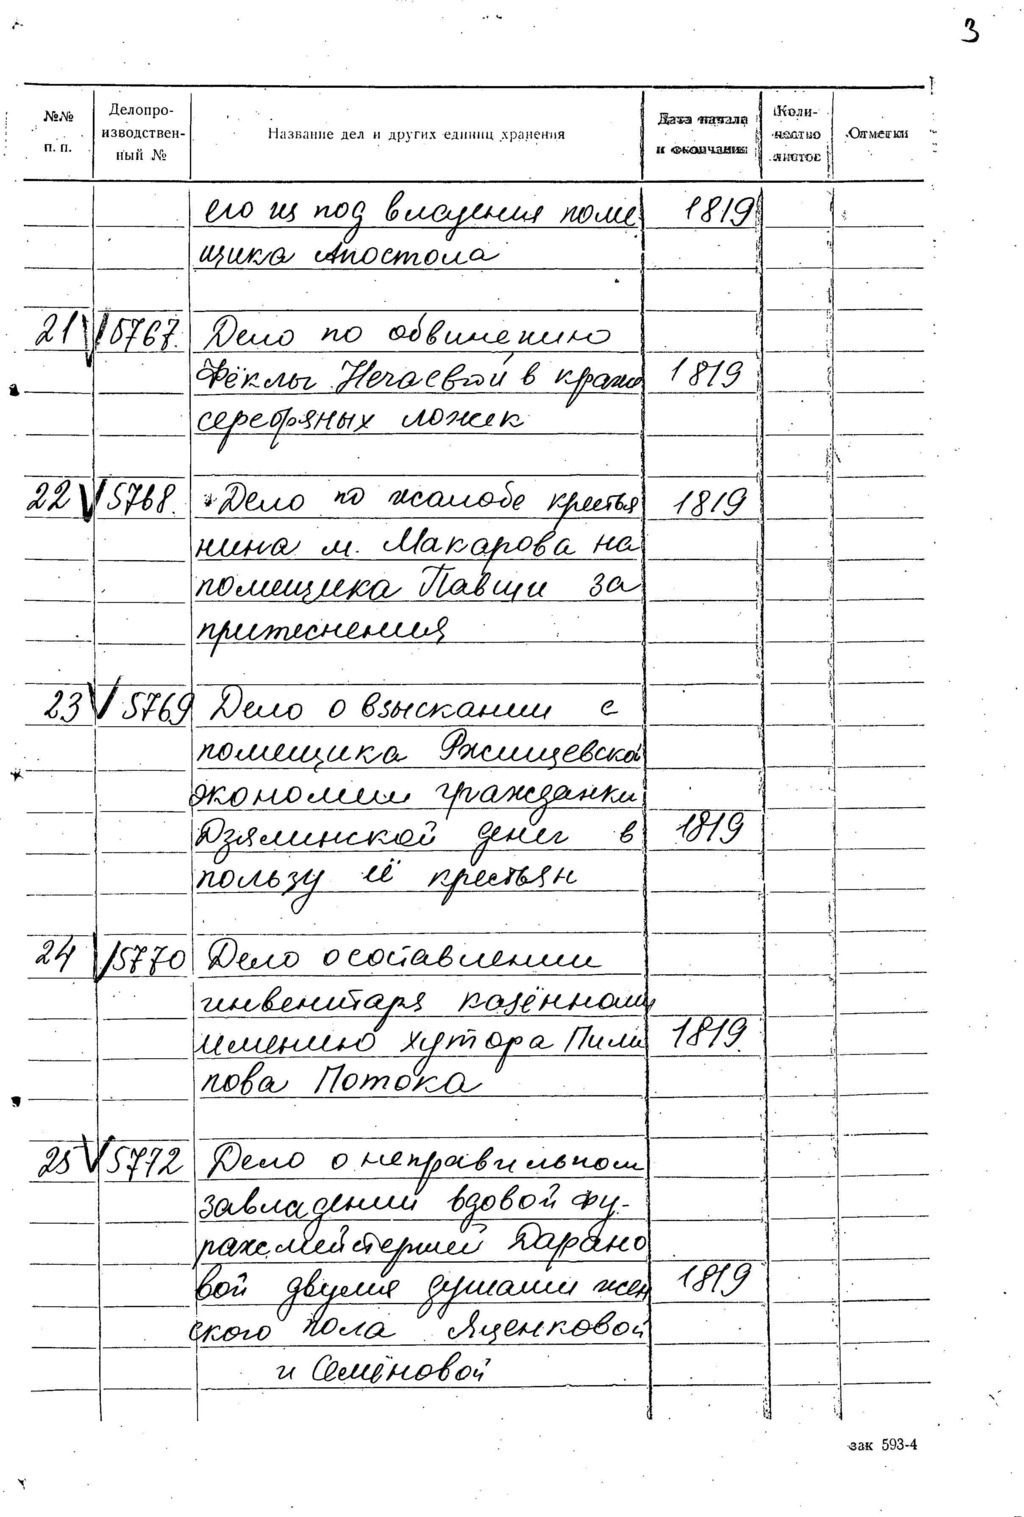 3
№№ п. п. Делопроизводственный № Название дел и других единиц хранения Дата начала и окончания Количество листов Отметки
его из под владения поме 1819
щика Апостола
21 5767. Дело по обвинению
Фёклы Нечаевой в краже 1819
серебряных ложек
22 5768. Дело по жалобе крестья 1819
нина м. Макарова на
помещика Павши за
притеснения
23 5769 Дело о взыскании с
помещика Ржищевской
экономии гражданки
Дзялинской денег в 1819
пользу её крестьян
24 5770 Дело о составлении
инвенитаря казённому
имению хутора Пили 1819
пова Потока
25 5772 Дело о неправильном
завладении вдовой фу-
ражмейстершей Дарано
вой двумя душами жен 1819
ского пола Яценковой
и Семёновой
зак 593-4